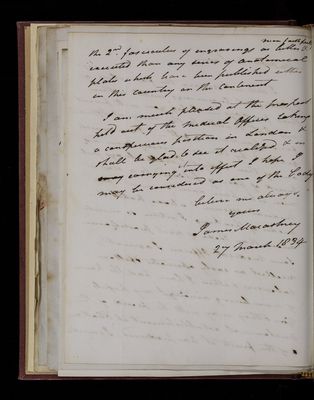 more faithfully
the 2nd fasciculus of engravings is better
executed than any series of anatomical
plates which have been published either
in this country or the continent.
I am much pleased at the prospect
held out of the Medical Officers taking
a conspicuous position in London &
shall be glad to see it realized & in
carrying into effect I hope I
may be considered as one of the Body
believe me always
yours
James Macartney
27 March 1834